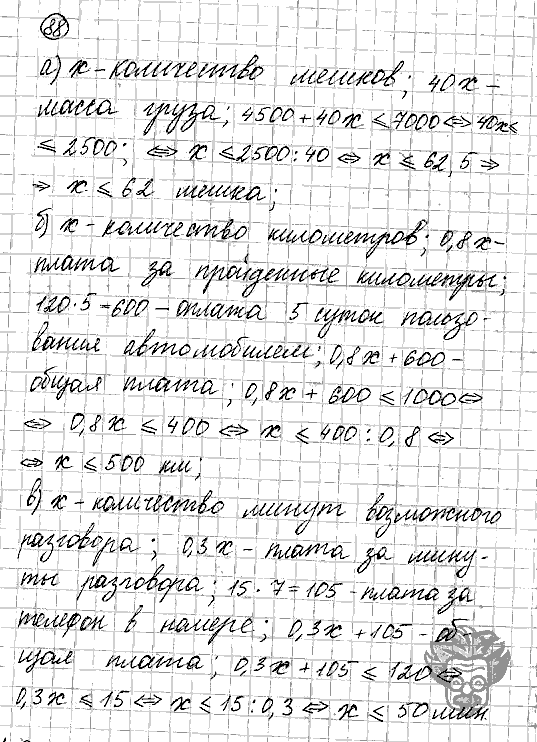 88
а) x - количество мешков; 40x -
масса груза; 4500 + 40x ≤ 7000 ⇔ 40x ≤
≤ 2500; ⇔ x ≤ 2500 : 40 ⇔ x ≤ 62,5 ⇒
⇒ x ≤ 62 мешка;
б) x - количество километров; 0,8x -
плата за пройденные километры;
120 · 5 = 600 - оплата 5 суток пользо-
вания автомобилем; 0,8x + 600 -
общая плата; 0,8x + 600 ≤ 1000 ⇔
⇔ 0,8x ≤ 400 ⇔ x ≤ 400 : 0,8 ⇔
⇔ x ≤ 500 км;
в) x - количество минут возможного
разговора; 0,3x - плата за мину-
ты разговора; 15 · 7 = 105 - плата за
телефон в номере; 0,3x + 105 - об-
щая плата; 0,3x + 105 ≤ 120 ⇔
0,3x ≤ 15 ⇔ x ≤ 15 : 0,3 ⇔ x ≤ 50 мин.